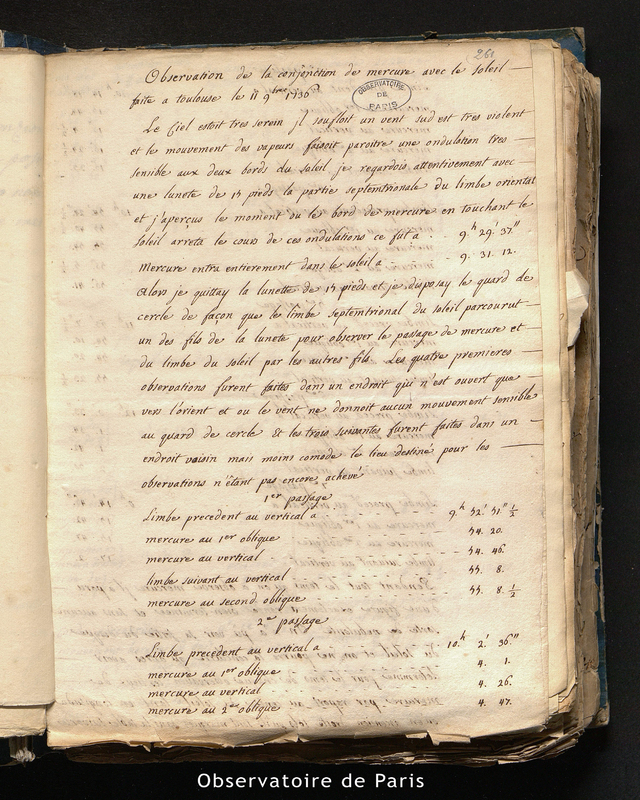 261
Observation de la conjonction de mercure avec le soleil
faite a toulouse le 11 9bre 1736
OBSERVATOIRE
DE
PARIS
Le Ciel estoit tres serein jl soufloit un vent sud est tres violent
et le mouvement des vapeurs faisoit paroitre une ondulation tres
sensible aux deux bords du soleil je regardois attentivement avec
une lunete de 15 pieds la partie septemtrionale du limbe oriental
et j'aperçus le moment ou le bord de mercure en touchant le
soleil arreta le cours de ces ondulations ce fut a - - 9h 29' 37"
mercure entra entierement dans le soleil a - - 9. 31. 12.
Alors je quittay la lunette de 15 pieds et je disposay le quard de
cercle de façon que le limbe septemtrional du soleil parcourut
un des fils de la lunete pour observer le passage de mercure et
du limbe du soleil par les autres fils. Les quatre premieres
observations furent faites dans un endroit qui n'est ouvert que
vers l'orient et ou le vent ne donnoit aucun mouvement sensible
au quard de cercle Et les trois suivantes furent faites dans un
endroit voisin mais moins comode le lieu destiné pour les
observations n'étant pas encore achevé
1er passage
Limbe precedent au vertical a - - 9h 52' 51" 1/2
mercure au 1er oblique - - 54. 20.
mercure au vertical - - 54. 46.
limbe suivant au vertical - - 55. 8.
mercure au second oblique - - 55. 8. 1/2
2me passage
Limbe precedent au vertical a - - 10h 2' 36"
mercure au 1er oblique - - 4. 1.
mercure au vertical - - 4. 26.
mercure au 2me oblique - - 4. 47.
Observatoire de Paris